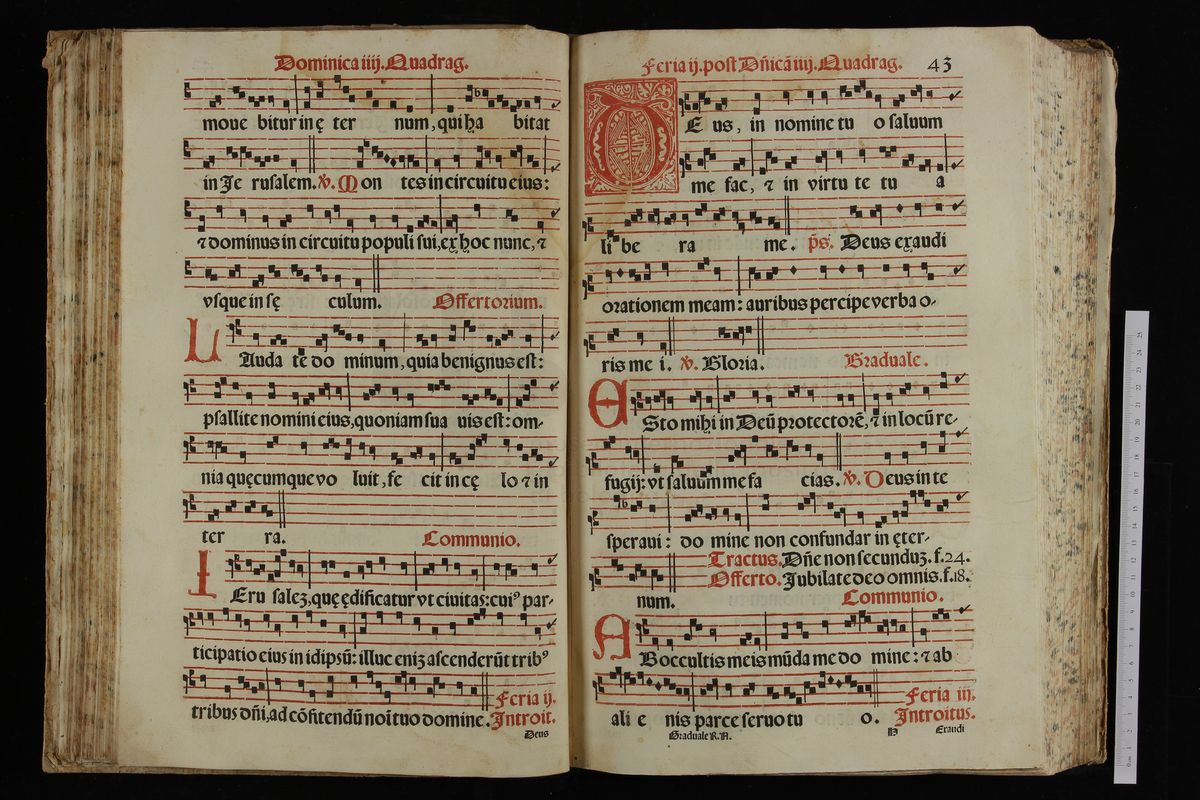 Dominica iiij. Quadrag.
moue bitur in ę ter num, qui ha bitat
in Je rusalem. ℣. Mon tes in circuitu eius:
⁊ dominus in circuitu populi sui, ex hoc nunc, ⁊
vsque in sę culum. Offertorium.
LAuda tē do minum, quia benignus est:
psallite nomini eius, quoniam sua uis est: om-
nia quęcumque vo luit, fe cit in cę lo ⁊ in
ter ra. Communio.
IEru salez, quę ędificatur vt ciuitas: cuiꝰ par-
ticipatio eius in idipsū: illuc eniz ascenderūt tribꝰ
tribus dñi, ad cōfitendū noī tuo domine. Feria ij.
Introit.
Deus
Feria ij. post Dñicā iiij. Quadrag. 43
DE us, in nomine tu o saluum
me fac, ⁊ in virtu te tu a
li be ra me. p̄s. Deus exaudi
orationem meam: auribus percipe verba o-
ris me i. ℣. Gloria. Graduale.
ESto mihi in Deū protectorē, ⁊ in locū re-
fugij: vt saluum me fa cias. ℣. Deus in te
speraui: do mine non confundar in ęter-
Tractus. Dñe non secunduz. f. 24.
Offerto. Jubilate deo omnis. f. 18.
num. Communio.
AB occultis meis mūda me do mine: ⁊ ab
ali e nis parce seruo tu o. Feria iij.
Introitus.
Graduale R. N. Exaudi